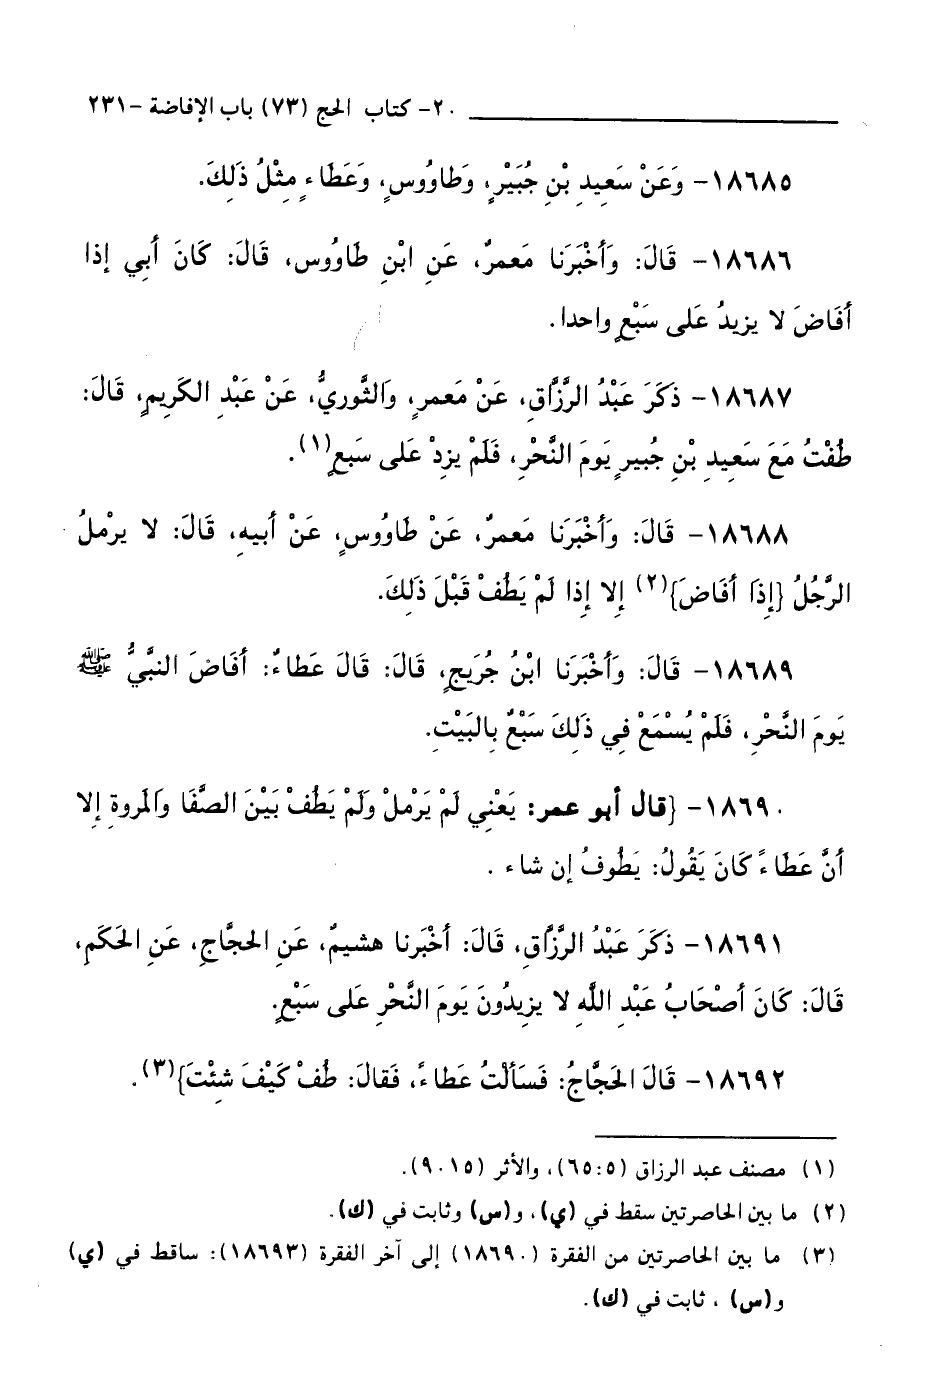 ٢٠- كتاب الحج (٧٣) باب الإفاضة -٢٣١
١٨٦٨٥- وَعَنْ سَعِيدِ بْنِ جُبَيْرٍ، وَطاوُوسٍ، وَعَطَاءٍ مِثْلُ ذَلِكَ.
١٨٦٨٦- قَالَ: وَأَخْبَرَنَا مَعمرٌ، عَنِ ابْنِ طَاوُوس، قَالَ: كَانَ أَبي إذا
أفَاضَ لا يزيدُ عَلى سَبْعٍ واحدا.
١٨٦٨٧- ذكَرَ عَبْدُ الرَّزَّاقِ، عَنْ مَعمرٍ، وَالثَّوريُّ، عَنْ عَبْدِ الكَريمِ، قَالَ:
طُفْتُ مَعَ سَعِيدِ بْنِ جُبيرٍ يَومَ النَّحْرِ، فَلَمْ يزِدْ عَلى سَبعٍ(١).
١٨٦٨٨- قَالَ: وَأَخْبَرَنا مَعمرٌ، عَنْ طَاوُوسٍ، عَنْ أبيهِ، قَالَ: لا يرْملُ
الرَّجُلُ {إِذَا أفَاضَ}(٢) إلا إِذا لَمْ يَطُفْ قَبْلَ ذَلِكَ.
١٨٦٨٩- قَالَ: وَأَخْبَرَنا ابْنُ جُرَيجٍ، قَالَ: قَالَ عَطاءٌ: أفَاضَ النبَّيُّ ﷺ
يَومَ النَّحْرِ، فَلَمْ يُسْمَعْ فِي ذَلِكَ سَبْعٌ بِالبَيْتِ.
١٨٦٩٠- {قال أبو عمر: يَعْنِي لَمْ يَرْملْ وَلَمْ يَطُفْ بَيْنَ الصَّفَا وَالمَروةِ إلا
أنَّ عَطَاءً كَانَ يَقُولُ: يَطُوفُ إن شاء .
١٨٦٩١- ذكَرَ عَبْدُ الرَّزَّاقِ، قَالَ: أخْبَرنا هشيمٌ، عَنِ الحجَّاجِ، عَنِ الحَكَمِ،
قَالَ: كَانَ أصْحَابُ عَبْدِ اللَّهِ لا يزيدُونَ يَومَ النَّحْرِ عَلى سَبْعٍ.
١٨٦٩٢- قَالَ الحَجَّاجُ: فَسَألْتُ عَطاءً، فَقالَ: طُفْ كَيْفَ شِئْتَ}(٣).
(١) مصنف عبد الرزاق (٥:٦٥)، والأثر (٩٠١٥).
(٢) ما بين الحاصرتين سقط في (ي)، و(س) وثابت في (ك).
(٣) ما بين الحاصرتين من الفقرة (١٨٦٩٠) إلى آخر الفقرة (١٨٦٩٣): ساقط في (ي)
و(س) ، ثابت في (ك).